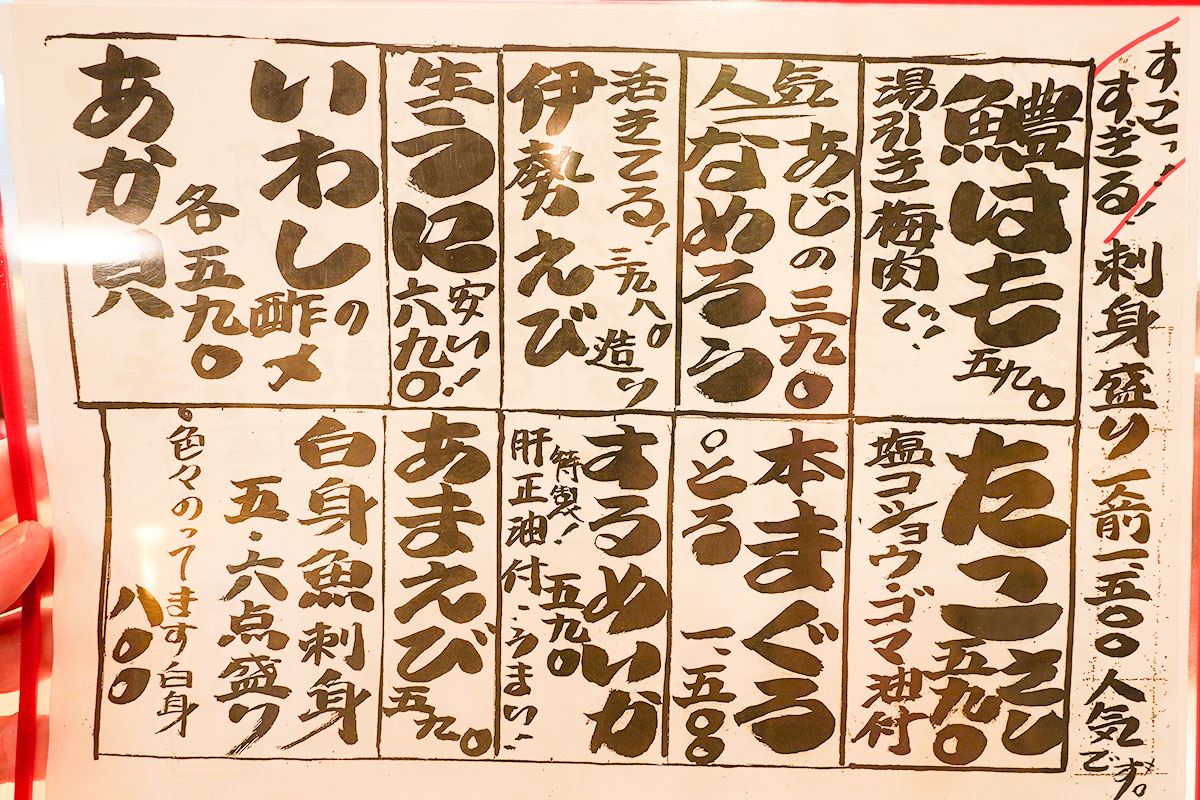 すごっ!
すぎる!刺身盛り一人前一、五〇〇人気です。
鱧はも五九〇
湯引き梅肉で!
人気
あじの三九〇
なめろう
活きてる!三九八〇
伊勢えび造り
生うに
安い!
六九〇
いわしの
酢〆
各五九〇
あか貝
たこさし
五九〇
塩コショウ・ゴマ油付
本まぐろ
とろ一、五〇〇
するめいか
特製!五九〇
肝正油付、うまい!
あまえび
五九〇
白身魚刺身
五・六点盛り
色々のってます白身
八〇〇